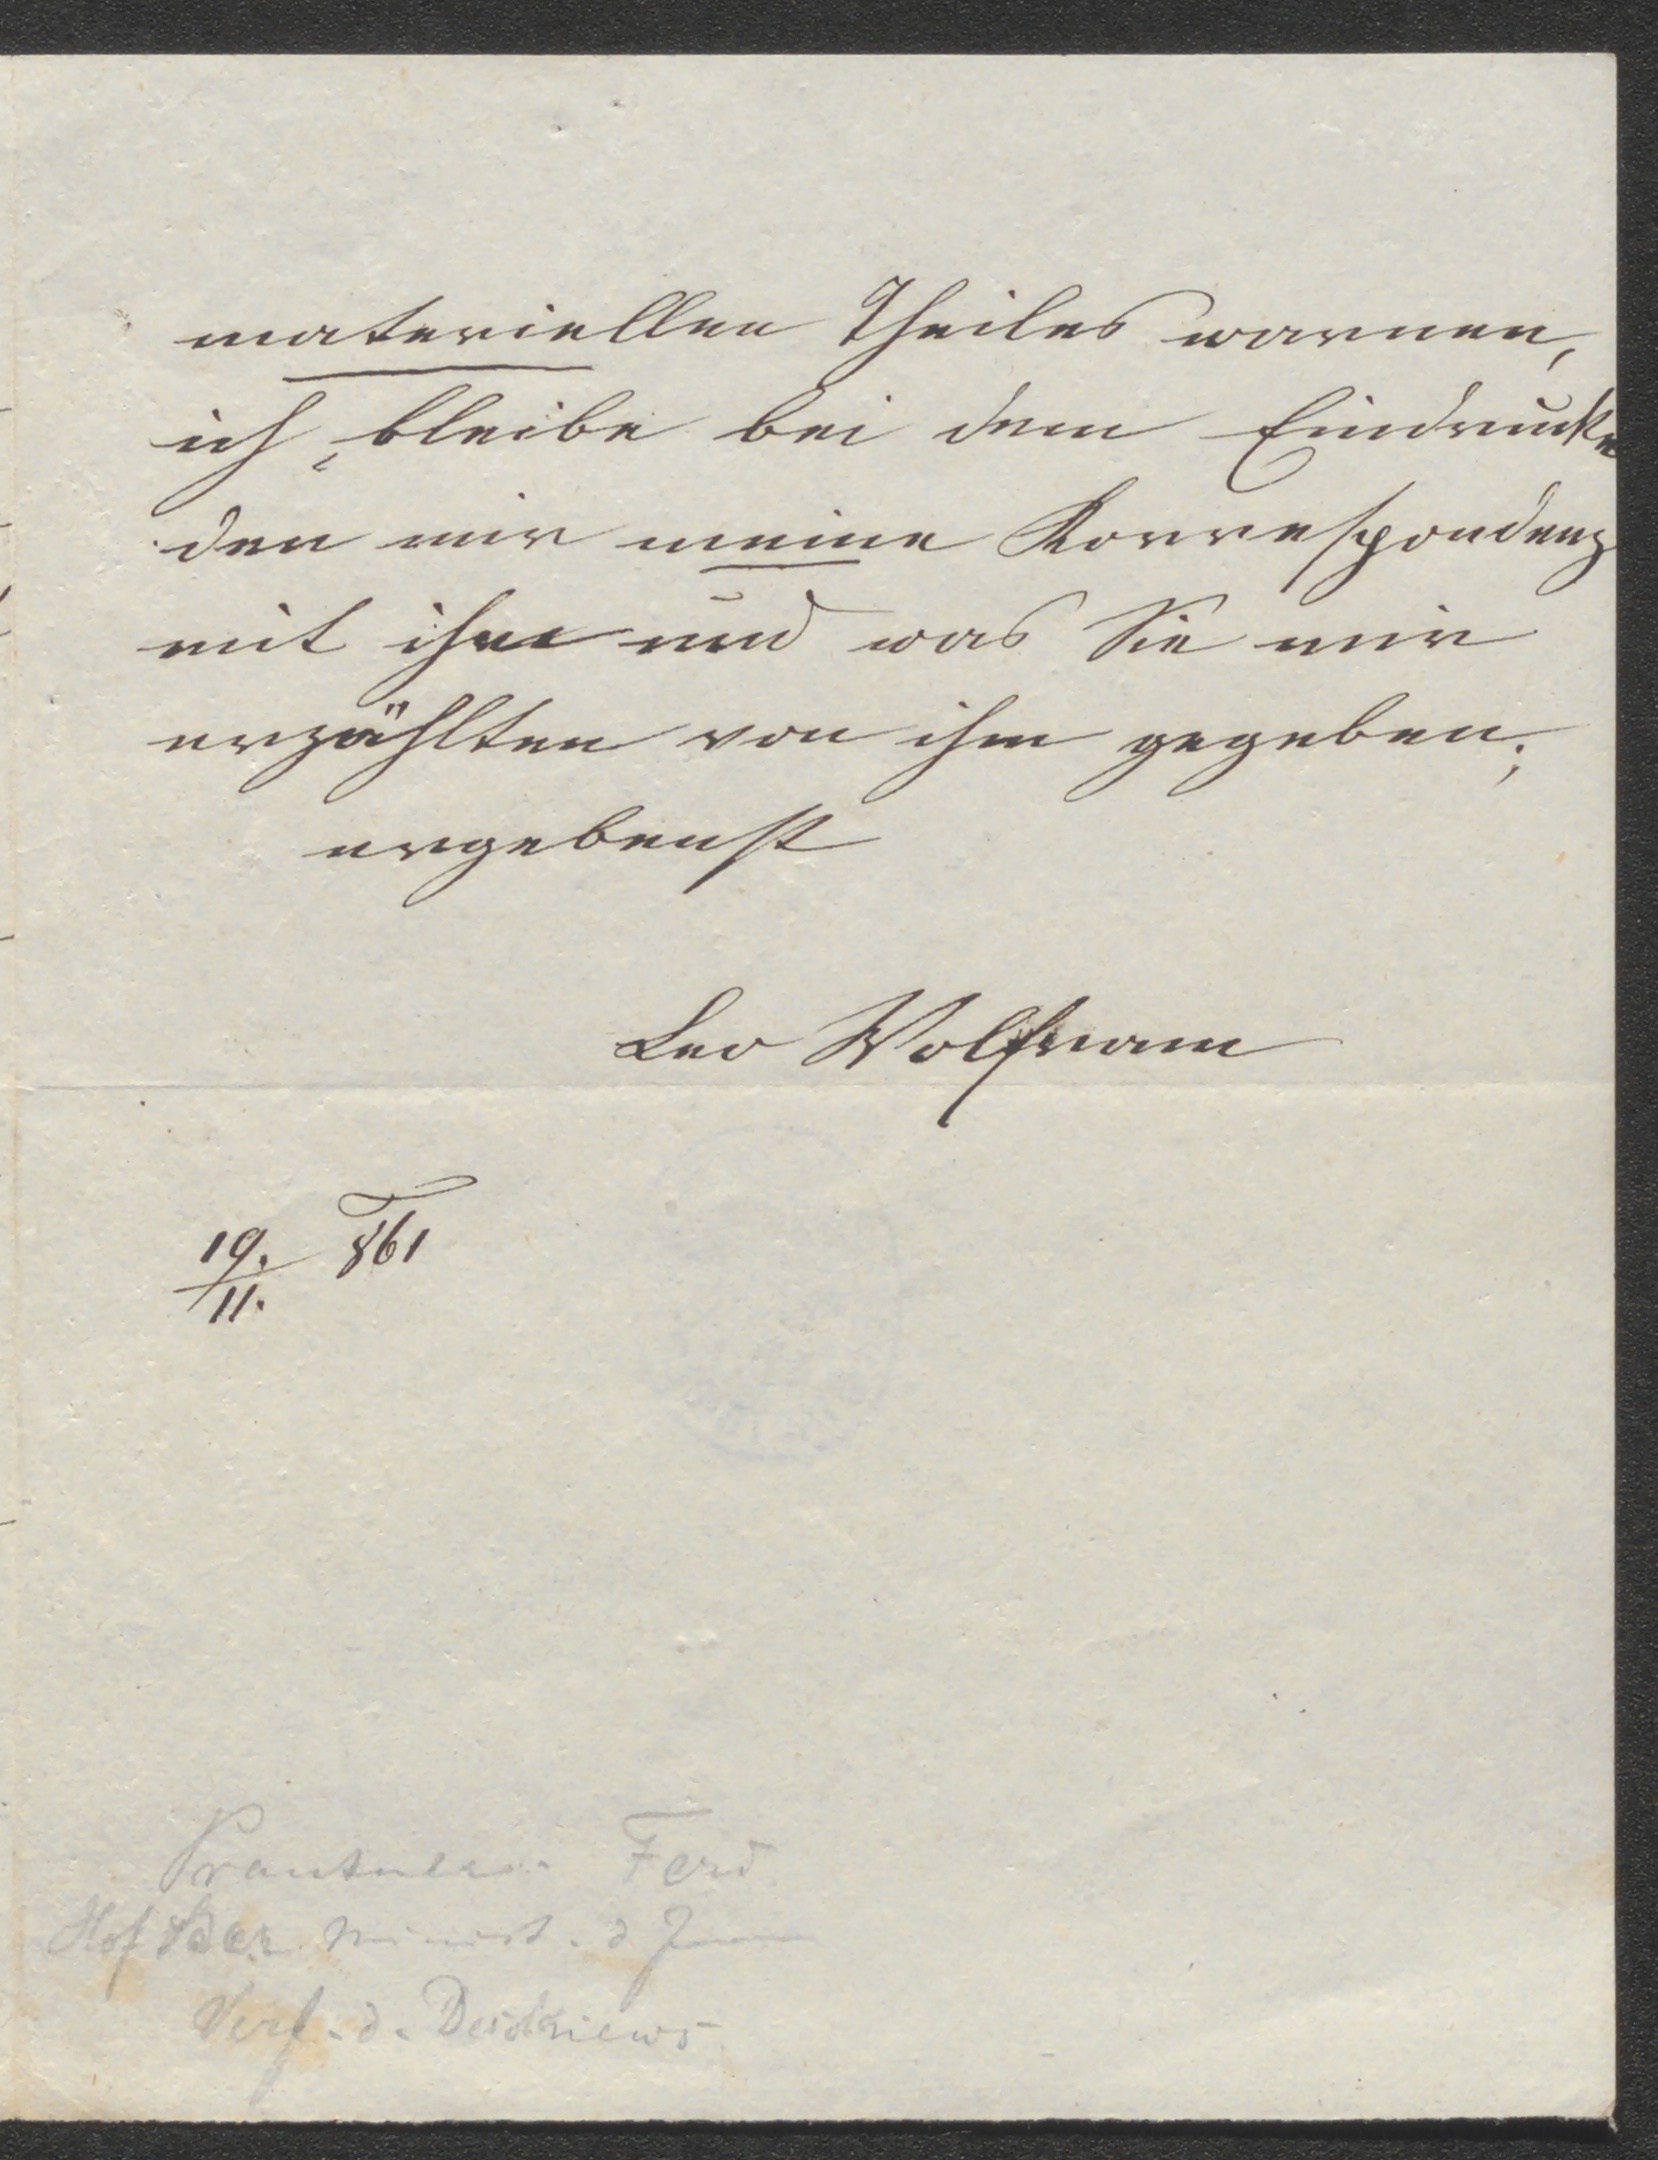 materiellen Theiles warnen,
ich, bleibe bei dem Eindrucke
den mir meine Korrespondenz
mit ihm und was Sie mir
erzählten von ihm gegeben.;
ergebenst
Leo Wolfram
19./11. 861
Prantner Ferd
Hof Sec. Minist. d Innern
Verf. d.